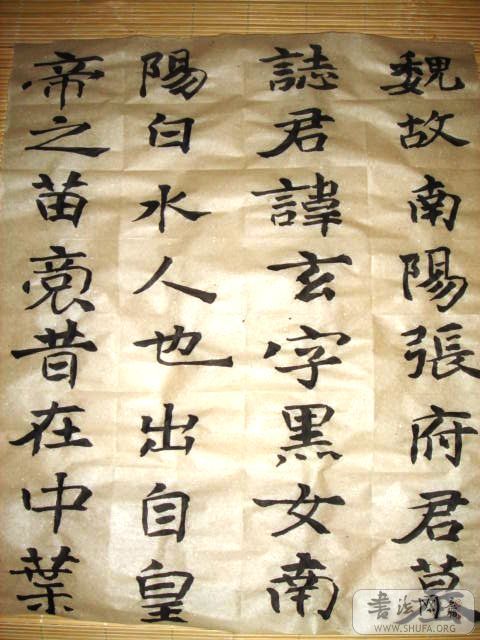 魏故南陽張府君墓
誌君諱玄字黑女南
陽白水人也出自皇
帝之苗裔昔在中葉
書法网
WWW.SHUFA.ORG